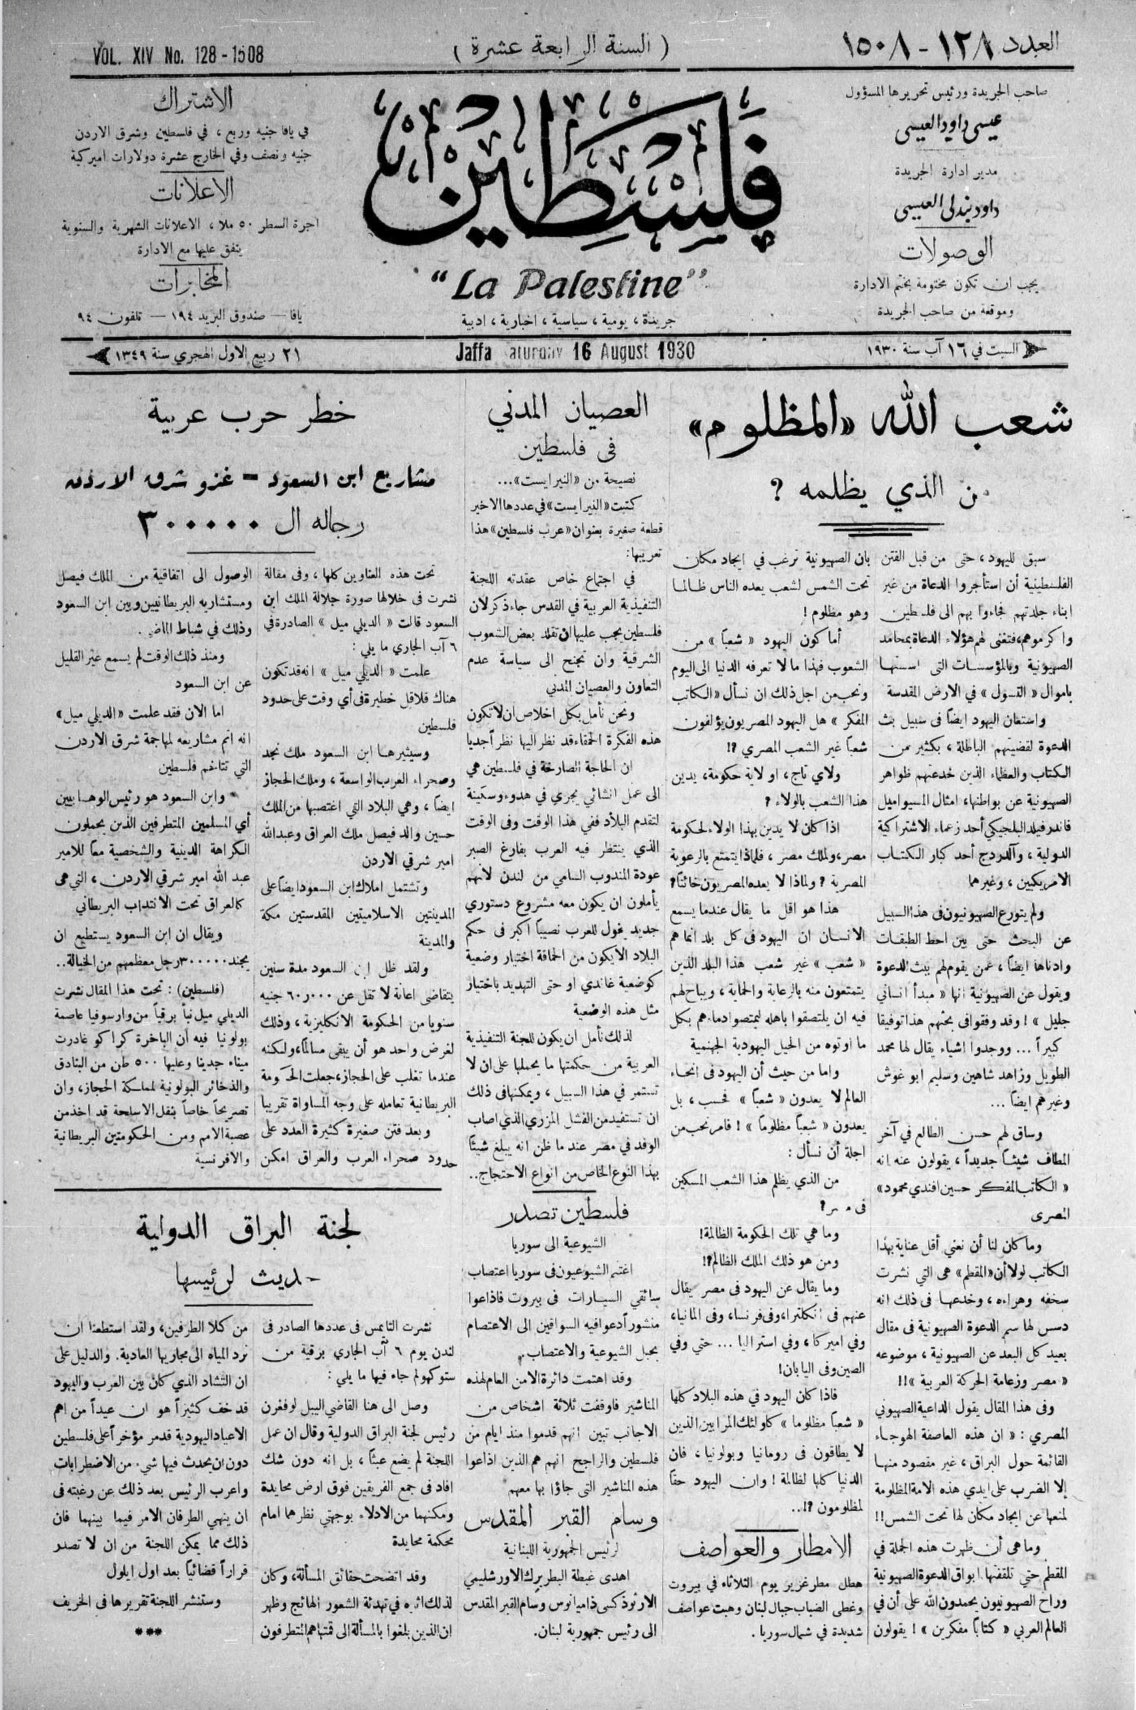 VOL. XIV No. 128 - 1508
( السنة الرابعة عشرة )
العدد ١٢٨ - ١٥٠٨
صاحب الجريدة ورئيس تحريرها المسؤول
عيسى داود العيسى
مدير ادارة الجريدة
داود بندلي العيسى
الوصولات
يجب ان تكون مختومة بختم الادارة
وموقعة من صاحب الجريدة
فلسطين
"La Palestine"
جريدة ، يومية ، سياسية ، اخبارية ، ادبية
الاشتراك
في يافا جنيه وربع ، في فلسطين وشرق الاردن
جنيه ونصف وفي الخارج عشرة دولارات اميركية
الاعلانات
اجرة السطر ٥٠ ملا ، الاعلانات الشهرية والسنوية
يتفق عليها مع الادارة
المخابرات
يافا — صندوق البريد ١٩٤ — تلفون ٩٤
السبت في ١٦ آب سنة ١٩٣٠
Jaffa Saturday 16 August 1930
٢١ ربيع الاول الهجري سنة ١٣٤٩
شعب الله «المظلوم»
من الذي يظلمه ؟
سبق لليهود ، حتى من قبل الفتن
الفلسطينية أن استأجروا الدعاة من غير
ابناء جلدتهم فجاءوا بهم الى فلسطين
واكرموهم ، فتغنى لهم هؤلاء الدعاة بمحامد
الصهيونية وبالمؤسسات التى اسستها
باموال « التسول » في الارض المقدسة
واستعان اليهود ايضاً فى سبيل بث
الدعوة لقضيتهم الباطلة ، بكثير من
الكتاب والعظماء الذين خدعتهم ظواهر
الصهيونية عن بواطنها ، امثال المسيو اميل
فاندرفيلد البلجيكي أحد زعماء الاشتراكية
الدولية ، وآلدردج أحد كبار الكتاب
الامريكيين ، وغيرهما
ولم يتورع الصهيونيون فى هذا السبيل
عن البحث حتى بين احط الطبقات
وادناها ايضاً ، عمن يقوم لهم ببث الدعوة
ويقول عن الصهيونية انها « مبدأ انساني
جليل » ! وقد وفقوا فى بحثهم هذا توفيقا
كبيراً ... ووجدوا اشياء يقال لها محمد
الطويل وزاهد شاهين وسليم ابو غوش
وغيرهم ايضاً ...
وساق لهم حسن الطالع في آخر
المطاف شيئاً جديداً ، يقولون عنه انه
« الكاتب المفكر حسين افندي محمود»
المصرى
وما كان لنا أن نعني أقل عناية بهذا
الكاتب لولا أن «المقطم» هى التي نشرت
سخفه وهراءه ، وخدعها فى ذلك انه
دسس لها سم الدعوة الصهيونية فى مقال
بعيد كل البعد عن الصهيونية ، موضوعه
« مصر وزعامة الحركة العربية »!!
وفى هذا المقال يقول الداعية الصهيوني
المصري : « ان هذه العاصفة الهوجاء
القائمة حول البراق ، غير مقصود منها
إلا الضرب على ايدي هذه الامة المظلومة
لمنعها عن ايجاد مكان لها تحت الشمس!!
وما هى أن ظهرت هذه الجملة في
المقطم حتى تلقفتها ابواق الدعوة الصهيونية
وراح الصهيونيون يحمدون الله على أن في
العالم العربي « كتاباً مفكرين » ! يقولون
بان الصهيونية ترغب في ايجاد مكان
تحت الشمس لشعب بعده الناس ظالما
وهو مظلوم !
أما كون اليهود « شعباً » من
الشعوب فهذا ما لا تعرفه الدنيا الى اليوم
ونحب من اجل ذلك ان نسأل « الكاتب
المفكر » هل اليهود المصريون يؤلفون
شعباً غير الشعب المصري ؟!
ولاي تاج ، او لاية حكومة ، يدين
هذا الشعب بالولاء ؟
اذا كان لا يدين بهذا الولاء لحكومة
مصر ، ولملك مصر ، فلماذا يتمتع بالرعوية
المصرية ؟ ولماذا لا يعده المصريون خائناً؟
هذا هو اقل ما يقال عندما يسمع
الانسان ان اليهود فى كل بلد انما هم
« شعب » غير شعب هذا البلد الذين
يتمتعون منه بالرعاية والحماية ، ويباح لهم
فيه ان يلتصقوا باهله ليمتصوا دماءهم بكل
ما اوتوه من الحيل اليهودية الجهنمية
واما من حيث أن اليهود فى انحاء
العالم لا يعدون « شعباً » فحسب ، بل
يعدون « شعباً مظلوماً » ! فامر نحب من
اجلة أن نسأل :
من الذي يظلم هذا الشعب المسكين
فى مصر؟
وما هي تلك الحكومة الظالمة!
ومن هو ذلك الملك الظالم؟!
وما يقال عن اليهود فى مصر يقال
عنهم فى انكلترا ، وفى فرنسا ، وفى المانيا ،
وفي اميركا ، وفي استراليا ... حتى وفي
الصين وفى اليابان!
فاذا كان اليهود في هذه البلاد كلها
« شعباً مظلوما » كاولئك المرابين الذين
لا يطاقون فى رومانيا وبولونيا ، فان
الدنيا كلها لظالمة ! وان اليهود حقاً
لمظلومون ؟!..
الامطار والعواصف
هطل مطر غزير يوم الثلاثاء في بيروت
وغطى الضباب جبال لبنان وهبت عواصف
شديدة في شمال سوريا .
العصيان المدني
فى فلسطين
نصيحة من «النير ايست»...
كتبت «النير ايست» في عددها الاخير
قطعة صغيرة بعنوان «عرب فلسطين» هذا
تعريبها:
في اجتماع خاص عقدته اللجنة
التنفيذية العربية في القدس جاء ذكر لان
فلسطين يجب عليها ان تقلد بعض الشعوب
الشرقية وان تجنح الى سياسة عدم
التعاون والعصيان المدني
ونحن نأمل بكل اخلاص ان لا تكون
هذه الفكرة الحمقاء قد نظر اليها نظراً جديا
ان الحاجة الصارخة في فلسطين هي
الى عمل انشائي يجري في هدوء وسكينة
لتقدم البلاد ففي هذا الوقت وفى الوقت
الذي ينتظر فيه العرب بفارغ الصبر
عودة المندوب السامي من لندن لانهم
يأملون ان يكون معه مشروع دستوري
جديد يخول للعرب نصيباً اكبر فى حكم
البلاد الايكون من الحماقة اختيار وضعية
كوضعية غاندي او حتى التهديد باختيار
مثل هذه الوضعية
لذلك نأمل ان يكون للجنة التنفيذية
العربية من حكمتها ما يحملها على ان لا
تستمر في هذا السبيل ، ويمكنها فى ذلك
ان تستفيد من الفشل المزري الذي اصاب
الوفد في مصر عند ما ظن انه يبلغ شيئاً
بهذا النوع الخاص من انواع الاحتجاج..
فلسطين تصدر
الشيوعية الى سوريا
اغتنم الشيوعيون فى سوريا اعتصاب
سائقي السيارات فى بيروت فاذاعوا
منشوراً دعوا فيه السواقين الى الاعتصام
بحبل الشيوعية والاعتصاب.
وقد اهتمت دائرة الامن العام لهذه
المناشير فاوقفت ثلاثة اشخاص من
الاجانب تبين انهم قدموا منذ ايام من
فلسطين والراجح انهم هم الذين اذاعوا
هذه المناشير التى جاؤا بها معهم
وسام القبر المقدس
لرئيس الجمهورية اللبنانية
اهدى غبطة البطريرك الاورشليمي
الارثوذكسى داميانوس وسام القبر المقدس
الى رئيس جمهورية لبنان.
خطر حرب عربية
مشاريع ابن السعود - غزو شرق الاردن
رجاله ال ٣٠٠٠٠٠
تحت هذه العناوين كلها ، وفى مقالة
نشرت فى خلالها صورة جلالة الملك ابن
السعود قالت « الديلي ميل » الصادرة في
٦ آب الجاري ما يلي :
علمت « الديلي ميل » انه قد تكون
هناك قلاقل خطيرة في أي وقت على حدود
فلسطين
وسيثيرها ابن السعود ملك نجد
وصحراء العرب الواسعة ، وملك الحجاز
ايضاً ، وهي البلاد التي اغتصبها من الملك
حسين والد فيصل ملك العراق وعبدالله
امير شرقي الاردن
وتشتمل املاك ابن السعود ايضاً على
المدينتين الاسلاميتين المقدستين مكة
والمدينة
ولقد ظل ابن السعود مدة سنين
يتقاضى اعانة لا تقل عن ٦٠٫٠٠٠ جنيه
سنويا من الحكومة الانكليزية ، وذلك
لغرض واحد هو أن يبقى مسالماً ، ولكنه
عندما تغلب على الحجاز ، جعلت الحكومة
البريطانية تعامله على وجه المساواة تقريبا
وبعد فتن صغيرة كثيرة العدد على
حدود صحراء العرب والعراق امكن
الوصول الى اتفاقية من الملك فيصل
ومستشاريه البريطانيين وبين ابن السعود
وذلك في شباط الماضي.
ومنذ ذلك الوقت لم يسمع غير القليل
عن ابن السعود
اما الان فقد علمت «الديلي ميل»
انه اتم مشاريعه لمهاجمة شرق الاردن
التي تتاخم فلسطين
وابن السعود هو رئيس الوهابيين
أي المسلمين المتطرفين الذين يحملون
الكراهة الدينية والشخصية معاً للامير
عبد الله امير شرقي الاردن ، التى هى
كالعراق تحت الانتداب البريطاني
ويقال ان ابن السعود يستطيع ان
يجند ٣٠٠٠٠٠ رجل معظمهم من الخيالة..
(فلسطين) : تحت هذا المقال نشرت
الديلي ميل نبأ برقياً من وارسوفيا عاصمة
بولونيا فيه أن الباخرة كراكو غادرت
ميناء جدينا وعليها ٥٠٠ طن من البنادق
والذخائر البولونية لمملكة الحجاز ، وان
تصريحاً خاصاً بنقل الاسلحة قد اخذ من
عصبة الامم ومن الحكومتين البريطانية
والافرنسية
لجنة البراق الدولية
حديث لرئيسها
نشرت التايمس فى عددها الصادر فى
لندن يوم ٦ آب الجاري برقية من
ستوكهولم جاء فيها ما يلي :
وصل الى هنا القاضي اليبل لوفغرن
رئيس لجنة البراق الدولية وقال ان عمل
اللجنة لم يضع عبثاً ، بل انه دون شك
افاد فى جمع الفريقين فوق ارض محايدة
ومكنهما من الادلاء بوجهتي نظرهما امام
محكمة محايدة
وقد اتضحت حقائق المسألة ، وكان
لذلك اثره في تهدئة الشعور الهائج وظهر
ان الذين بلغوا بالمسألة الى قمتها هم المتطرفون
من كلا الطرفين ، ولقد استطعنا ان
نرد المياه الى مجاريها العادية. والدليل على
ان التشاد الذي كان بين العرب واليهود
قد خف كثيراً هو ان عيداً من اهم
الاعياد اليهودية قد مر مؤخراً على فلسطين
دون ان يحدث فيها شيء من الاضطرابات
واعرب الرئيس بعد ذلك عن رغبته في
ان ينهي الطرفان الامر فيما بينهما فان
ذلك مما يمكن اللجنة من ان لا تصدر
قراراً قضائياً بعد اول ايلول
وستنشر اللجنة تقريرها فى الخريف
***